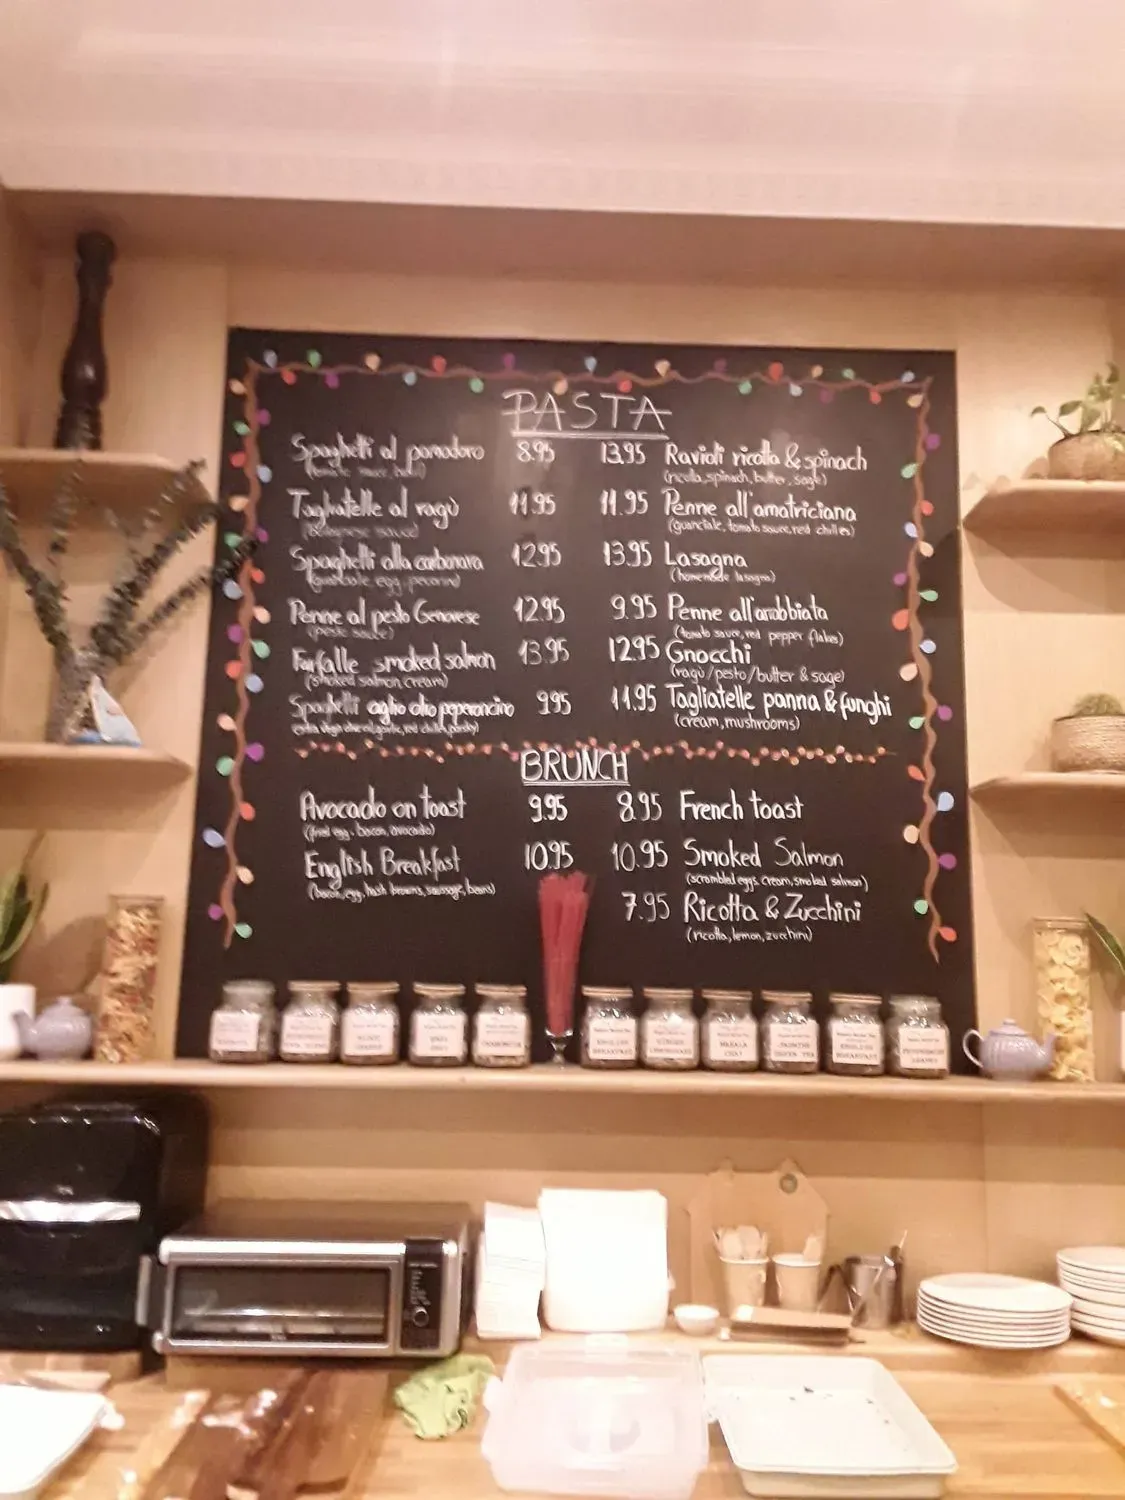 PASTA
Spaghetti al pomodoro 8.95
Tagliatelle al ragù 11.95
(Bolognese sauce)
Spaghetti alla carbonara 12.95
(guanciale, egg, pecorino)
Penne al pesto Genovese 12.95
(pesto sauce)
Farfalle smoked salmon 13.95
(smoked salmon, cream)
Spaghetti aglio olio peperoncino 9.95
13.95 Ravioli ricotta & spinach
(ricotta, spinach, butter, sage)
11.95 Penne all'amatriciana
(guanciale, tomato sauce, red chillies)
13.95 Lasagna
(homemade lasagna)
9.95 Penne all'arabbiata
(tomato sauce, red pepper flakes)
12.95 Gnocchi
(ragù/pesto/butter & sage)
11.95 Tagliatelle panna & funghi
(cream, mushrooms)
BRUNCH
Avocado on toast 9.95
(fried egg, bacon, avocado)
English Breakfast 10.95
(bacon, egg, hash browns, sausage, beans)
8.95 French toast
10.95 Smoked Salmon
(scrambled eggs, cream, smoked salmon)
7.95 Ricotta & Zucchini
(ricotta, lemon, zucchini)
CHAMOMILE
ENGLISH
BREAKFAST
MASALA
CHAI
JASMINE
GREEN TEA
ENGLISH
BREAKFAST